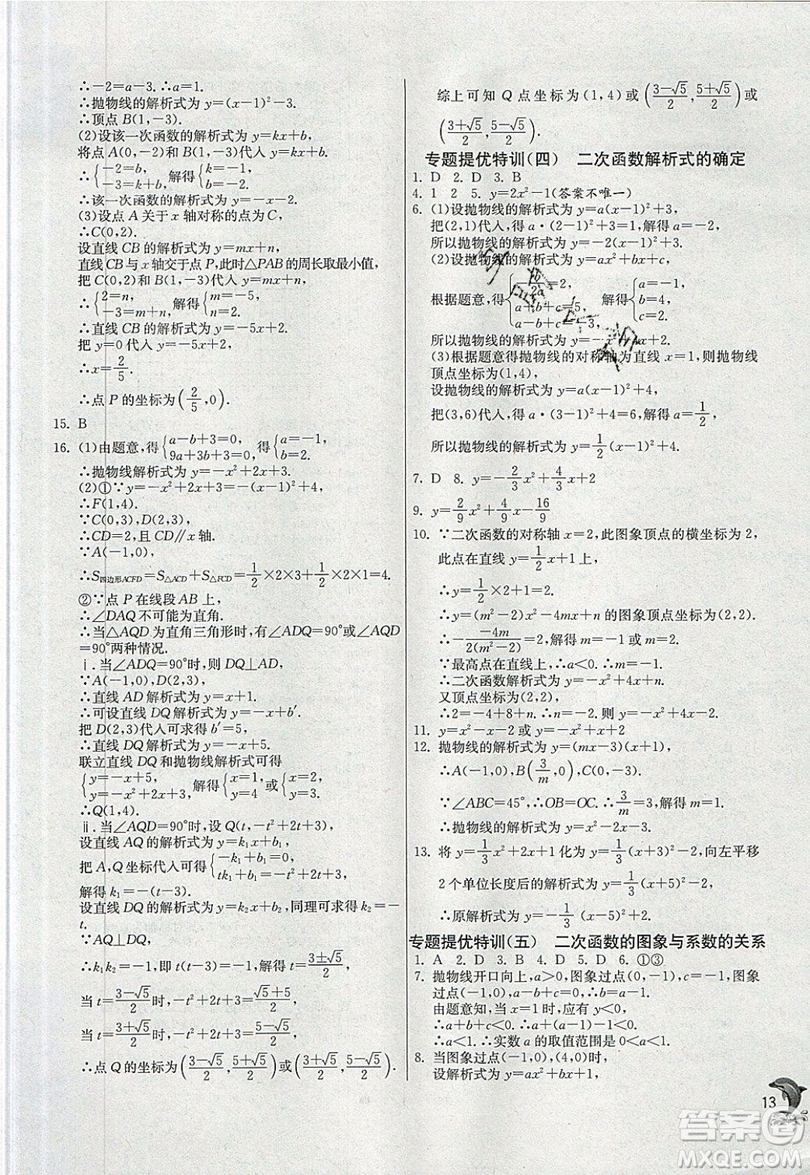 ∴-2=a-3. ∴a=1.
∴抛物线的解析式为 y=(x-1)²-3.
∴顶点 B(1,-3).
(2)设该一次函数的解析式为 y=kx+b,
将点 A(0,-2)和 B(1,-3)代入 y=kx+b,
∴{-2=b, -3=k+b, 解得{k=-1, b=-2.
∴该一次函数的解析式为 y=-x-2.
(3)设点 A 关于 x 轴对称的点为 C,
∴C(0,2).
设直线 CB 的解析式为 y=mx+n,
直线 CB 与 x 轴交于点 P,此时△PAB 的周长取最小值,
把 C(0,2)和 B(1,-3)代入 y=mx+n,
∴{2=n, -3=m+n, 解得{m=-5, n=2.
∴直线 CB 的解析式为 y=-5x+2.
把 y=0 代入 y=-5x+2,
∴x=2/5.
∴点 P 的坐标为(2/5,0).
15. B
16. (1)由题意,得{a-b+3=0, 9a+3b+3=0, 得{a=-1, b=2.
∴抛物线解析式为 y=-x²+2x+3.
(2)①∵y=-x²+2x+3=-(x-1)²+4,
∴F(1,4).
∵C(0,3),D(2,3),
∴CD=2,且 CD∥x 轴.
∵A(-1,0),
∴S四边形ACFD=S△ACD+S△FCD=1/2×2×3+1/2×2×1=4.
②∵点 P 在线段 AB 上,
∴∠DAQ 不可能为直角.
∴当△AQD 为直角三角形时,有∠ADQ=90°或∠AQD=90°
两种情况.
ⅰ.当∠ADQ=90°时,则 DQ⊥AD,
∵A(-1,0),D(2,3),
∴直线 AD 解析式为 y=x+1.
∴可设直线 DQ 解析式为 y=-x+b′.
把 D(2,3)代入可求得 b′=5.
∴直线 DQ 解析式为 y=-x+5.
联立直线 DQ 和抛物线解析式可得
{y=-x+5, y=-x²+2x+3, 解得{x=1, y=4 或{x=2, y=3.
∴Q(1,4).
ⅱ.当∠AQD=90°时,设 Q(t,-t²+2t+3),
设直线 AQ 的解析式为 y=k₁x+b₁,
把 A,Q 坐标代入可得{-k₁+b₁=0, tk₁+b₁=-t²+2t+3,
解得 k₁=-(t-3).
设直线 DQ 解析式为 y=k₂x+b₂,同理可求得 k₂=-
t.
∵AQ⊥DQ,
∴k₁k₂=-1,即 t(t-3)=-1,解得 t=(3±√5)/2.
当 t=(3-√5)/2时,-t²+2t+3=(5+√5)/2,
当 t=(3+√5)/2时,-t²+2t+3=(5-√5)/2,
∴点 Q 的坐标为((3-√5)/2,(5+√5)/2)或((3+√5)/2,(5-√5)/2).
综上可知 Q 点坐标为(1,4)或((3-√5)/2,(5+√5)/2)或
((3+√5)/2,(5-√5)/2).
专题提优特训(四) 二次函数解析式的确定
1. D 2. D 3. B
4. 1 2 5. y=2x²-1(答案不唯一)
6. (1)设抛物线的解析式为 y=a(x-1)²+3,
把(2,1)代入,得 a·(2-1)²+3=1,解得 a=-2,
所以抛物线的解析式为 y=-2(x-1)²+3.
(2)设抛物线的解析式为 y=ax²+bx+c,
根据题意,得{-b/2a=2, a+b+c=5, a-b+c=-3, 解得{a=-1, b=4, c=2,
所以抛物线的解析式为 y=-x²+4x+2.
(3)根据题意得抛物线的对称轴为直线 x=1,则抛物线
顶点坐标为(1,4),
设抛物线的解析式为 y=a(x-1)²+4,
把(3,6)代入,得 a·(3-1)²+4=6,解得 a=1/2,
所以抛物线的解析式为 y=1/2(x-1)²+4.
7. D 8. y=-2/3x²+4/3x+2
9. y=2/9x²+4/9x-16/9
10. ∵二次函数的对称轴 x=2,此图象顶点的横坐标为 2,
此点在直线 y=1/2x+1 上.
∴y=1/2×2+1=2.
∴y=(m²-2)x²-4mx+n 的图象顶点坐标为(2,2).
∴-(-4m)/(2(m²-2))=2,解得 m=-1 或 m=2.
∵最高点在直线上,∴a<0.∴m=-1.
∴二次函数解析式为 y=-x²+4x+n.
又顶点为(2,2),
∴2=-4+8+n.∴n=-2.∴y=-x²+4x-2.
11. y=-x²-x+2 或 y=-x²+x+2
12. 抛物线的解析式为 y=(mx-3)(x+1),
∴A(-1,0),B(3/m,0),C(0,-3).
∵∠ABC=45°,∴OB=OC.∴3/m=3,解得 m=1.
∴抛物线的解析式为 y=x²-2x-3.
13. 将 y=1/3x²+2x+1 化为 y=1/3(x+3)²-2,向左平移
2 个单位长度后的解析式为 y=1/3(x+5)²-2,
∴原解析式为 y=-1/3(x-5)²+2.
专题提优特训(五) 二次函数的图象与系数的关系
1. A 2. D 3. B 4. D 5. D 6. ①③
7. 抛物线开口向上,a>0,图象过点(0,-1),c=-1,图象
过点(-1,0),a-b-1=0,∴b=a-1.
由题意知,当 x=1 时,应有 y<0,
∴a+b+c<0.∴a+(a-1)-1<0.
∴a<1.∴实数 a 的取值范围是 0<a<1.
8. 当图象过点(0,1),(4,0)时,
设解析式为 y=ax²+bx+1,
13
答案圈
MXQE.COM